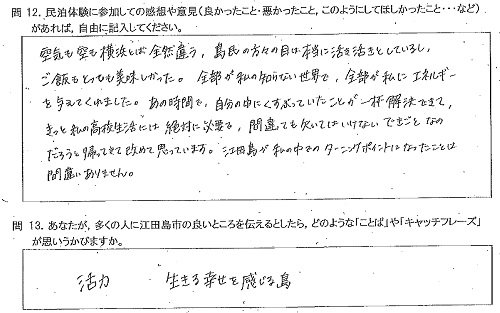 問 12. 民泊体験に参加しての感想や意見(良かったこと・悪かったこと，このようにしてほしかったこと・・・など)
があれば，自由に記入してください。
空気も空も横浜とは全然違う，島民の方々の目は本当に活き活きとしているし，
ご飯もとっても美味しかった。全部が私の知らない世界で，全部が私にエネルギー
を与えてくれました。あの時間で，自分の中にくすぶっていたことが一杯解決できて，
きっと私の高校生活には絶対に必要な，間違っても欠いてはいけないできごとなの
だろうと帰ってきて改めて思っています。江田島が私の中でのターニングポイントになったことは
間違いありません。
問 13. あなたが，多くの人に江田島市の良いところを伝えるとしたら，どのような「ことば」や「キャッチフレーズ」
が思いうかびますか。
活力 生きる幸せを感じる島